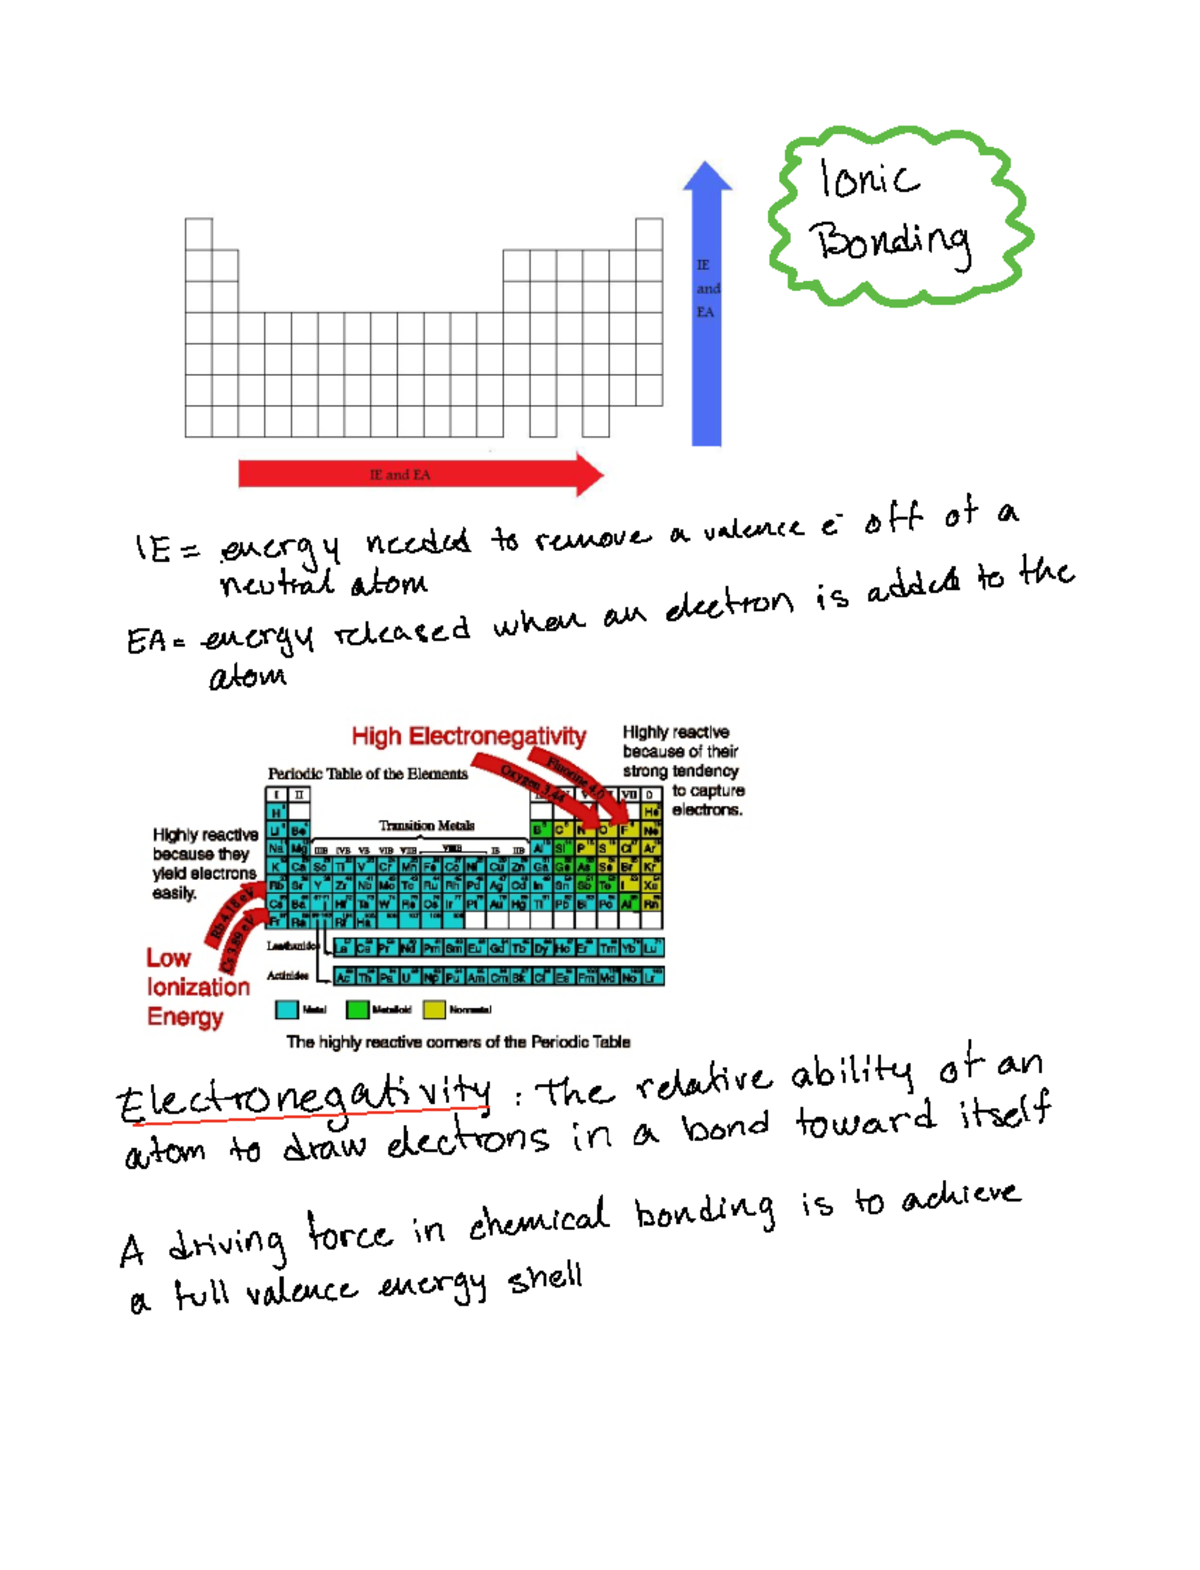 Ionic
Bonding
IE
and
EA
IE and EA
IE = energy needed to remove a valence e⁻ off of a
neutral atom
EA = energy released when an electron is added to the
atom
High Electronegativity
Highly reactive
because of their
strong tendency
to capture
electrons.
Oxygen 3.44
Fluorine 4.0
Periodic Table of the Elements
I II VII 0
H He
Transition Metals
Li Be B C N O F Ne
IIIB IVB VB VIB VIIB VIIIB IB IIB
Na Mg Al Si P S Cl Ar
K Ca Sc Ti V Cr Mn Fe Co Ni Cu Zn Ga Ge As Se Br Kr
Rb Sr Y Zr Nb Mo Tc Ru Rh Pd Ag Cd In Sn Sb Te I Xe
Cs Ba Hf Ta W Re Os Ir Pt Au Hg Tl Pb Bi Po At Rn
Fr Ra Rf Ha
Highly reactive
because they
yield electrons
easily.
Rb 4.18 eV
Cs 3.89 eV
Low
Ionization
Energy
Lanthanides La Ce Pr Nd Pm Sm Eu Gd Tb Dy Ho Er Tm Yb Lu
Actinides Ac Th Pa U Np Pu Am Cm Bk Cf Es Fm Md No Lr
Metal Metalloid Nonmetal
The highly reactive corners of the Periodic Table
Electronegativity : The relative ability of an
atom to draw electrons in a bond toward itself
A driving force in chemical bonding is to achieve
a full valence energy shell